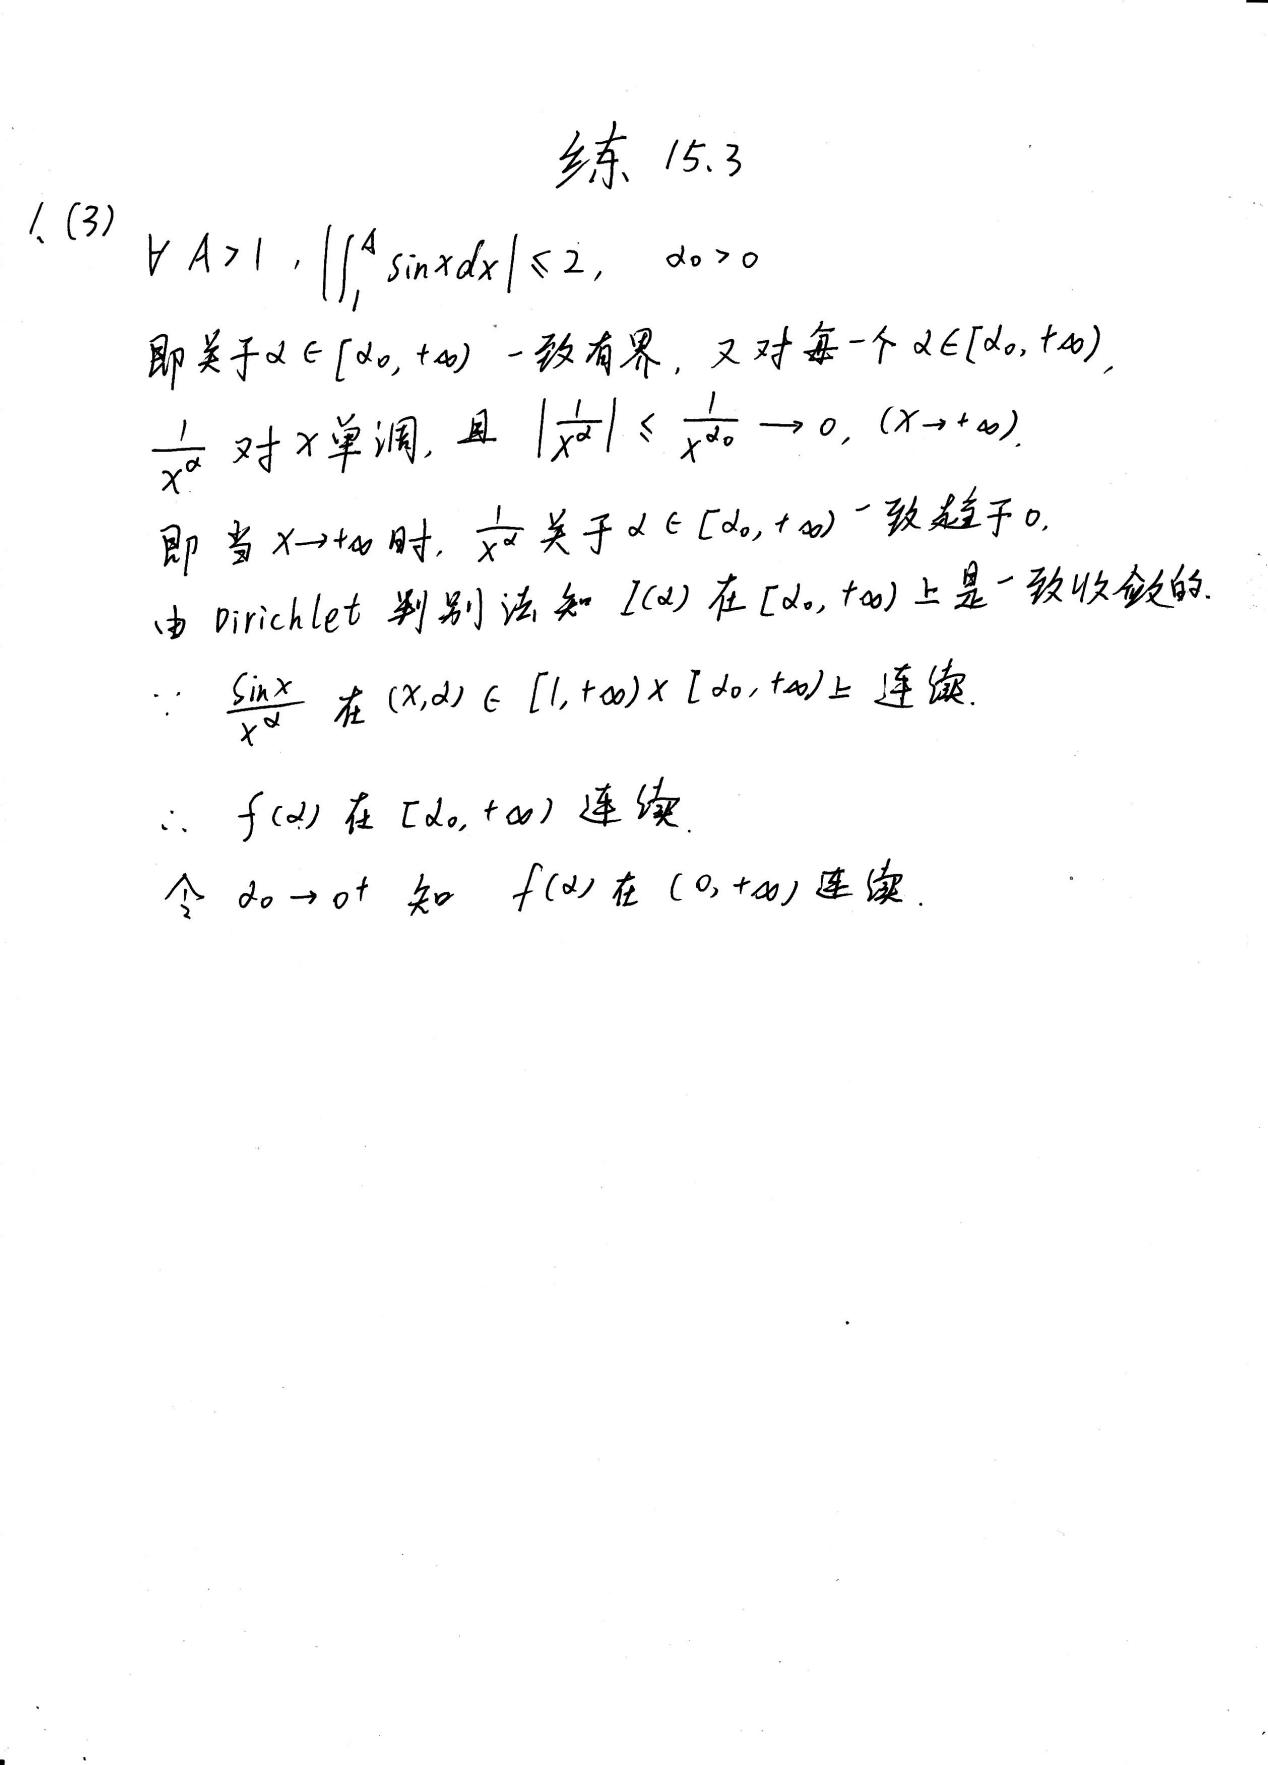 练 15.3
1.(3)
∀ A>1, |∫₁ᴬ sinxdx| ≤ 2, α₀>0
即关于α∈[α₀,+∞) 一致有界, 又对每一个 α∈[α₀,+∞),
1/x^α 对x单调, 且 |1/x^α| ≤ 1/x^α₀ → 0, (x→+∞).
即当x→+∞时, 1/x^α 关于α∈[α₀,+∞)一致趋于0.
由 Dirichlet 判别法知 I(α) 在[α₀,+∞)上是一致收敛的.
∵ sinx/x^α 在 (x,α)∈[1,+∞)×[α₀,+∞)上 连续.
∴ f(α) 在 [α₀,+∞) 连续.
令 α₀→0⁺ 知 f(α) 在 (0,+∞) 连续.